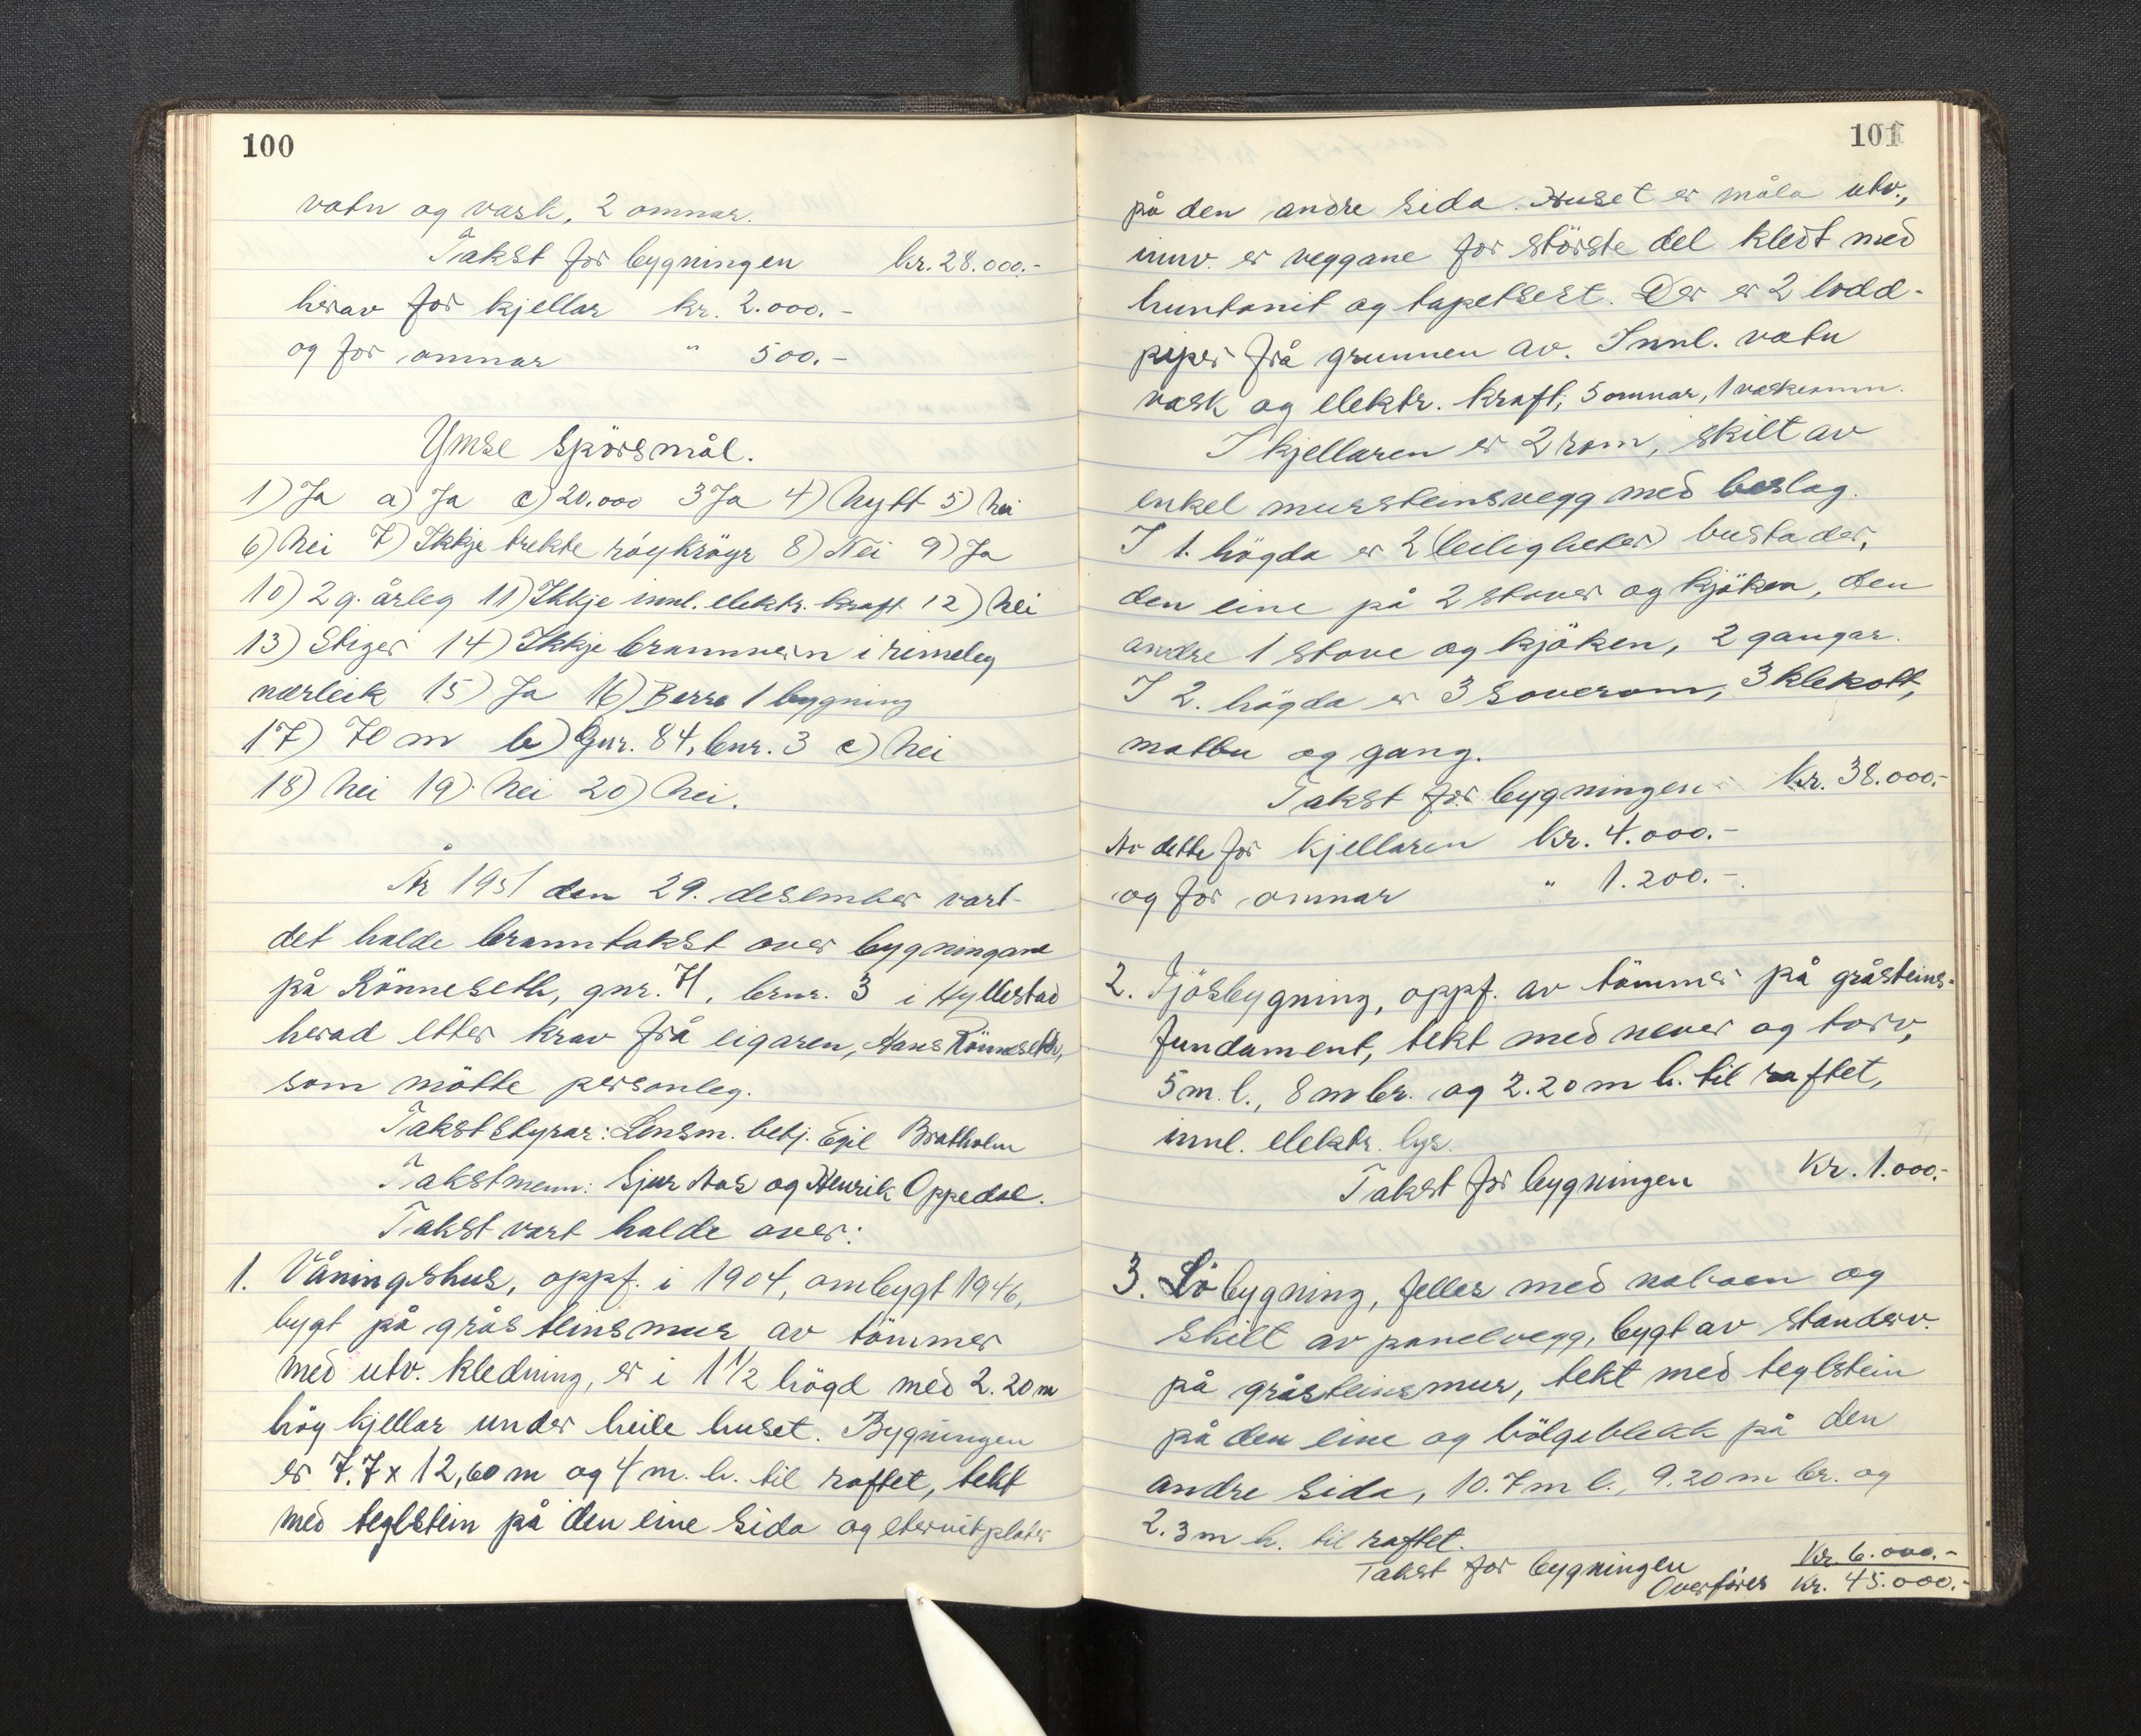 100
vatn og vask, 2 omnar.
Takst for bygningen kr. 28.000.-
herav for kjellar kr. 2.000.-
og for omnar " 500.-
Ymse spörsmål.
1) Ja a) Ja c) 20.000 3 Ja 4) Nytt 5) Nei
6) Nei 7) Ikkje trekte röykröyr 8) Nei 9) Ja
10) 2 g. årleg 11) Ikkje innl. elektr. kraft 12) Nei
13) Stiger 14) Ikkje brannvern i rimeleg
nærleik 15) Ja 16) Berre 1 bygning
17) 70 m b) Gnr. 84, bnr. 3 c) Nei
18) Nei 19) Nei 20) Nei.
År 1951 den 29. desember vart
det halde branntakst over bygningane
på Rönneseth, gnr. 71, brnr. 3 i Hyllestad
herad etter krav frå eigaren, Hans Rönneseth,
som mötte personleg.
Takststyrar: Lensm. betj. Egil Bratholm
Takstmenn: Sjur Aas og Henrik Oppedal.
Takst vart halde over:
1. Våningshus, oppf. i 1904, ombygt 1946,
bygt på gråsteinsmur av tömmer
med utv. kledning, er i 1 1/2 högd med 2.20 m
höy kjellar under heile huset. Bygningen
er 7.7 x 12,60 m og 4 m. h. til raftet, tekt
med teglstein på den eine sida og eternitplater
101
på den andre sida. Huset er måla utv.,
innv. er veggane for störste del kledt med
huntonit og tapetsert. Der er 2 lodd-
piper frå grunnen av. Innl. vatn
vask og elektr. kraft, 5 omnar, 1 vaskeomn.
I kjellaren er 2 rom, skilt av
enkel mursteinsvegg med beslag.
I 1. högda er 2 (leiligheter) bustader,
den eine på 2 stover og kjöken, den
andre 1 stove og kjöken, 2 gangar.
I 2. högda er 3 soverom, 3 klekott,
matbu og gang.
Takst for bygningen kr. 38.000.-
Av dette for kjellaren kr. 4.000.-
og for omnar " 1.200.-
2. Fjösbygning, oppf. av tömmer på gråsteins-
fundament, tekt med never og torv,
5 m. l., 8 m br. og 2.20 m h. til raftet,
innl. elektr. lys.
Takst for bygningen Kr. 1.000.-
3. Löbygning, felles med naboen og
skilt av panelvegg, bygt av standerv.
på gråsteinsmur, tekt med teglstein
på den eine og bölgeblekk på den
andre sida, 10.7 m l., 9.20 m br. og
2.3 m h. til raftet.
Takst for bygningen Kr. 6.000.-
Overföres Kr. 45.000.-